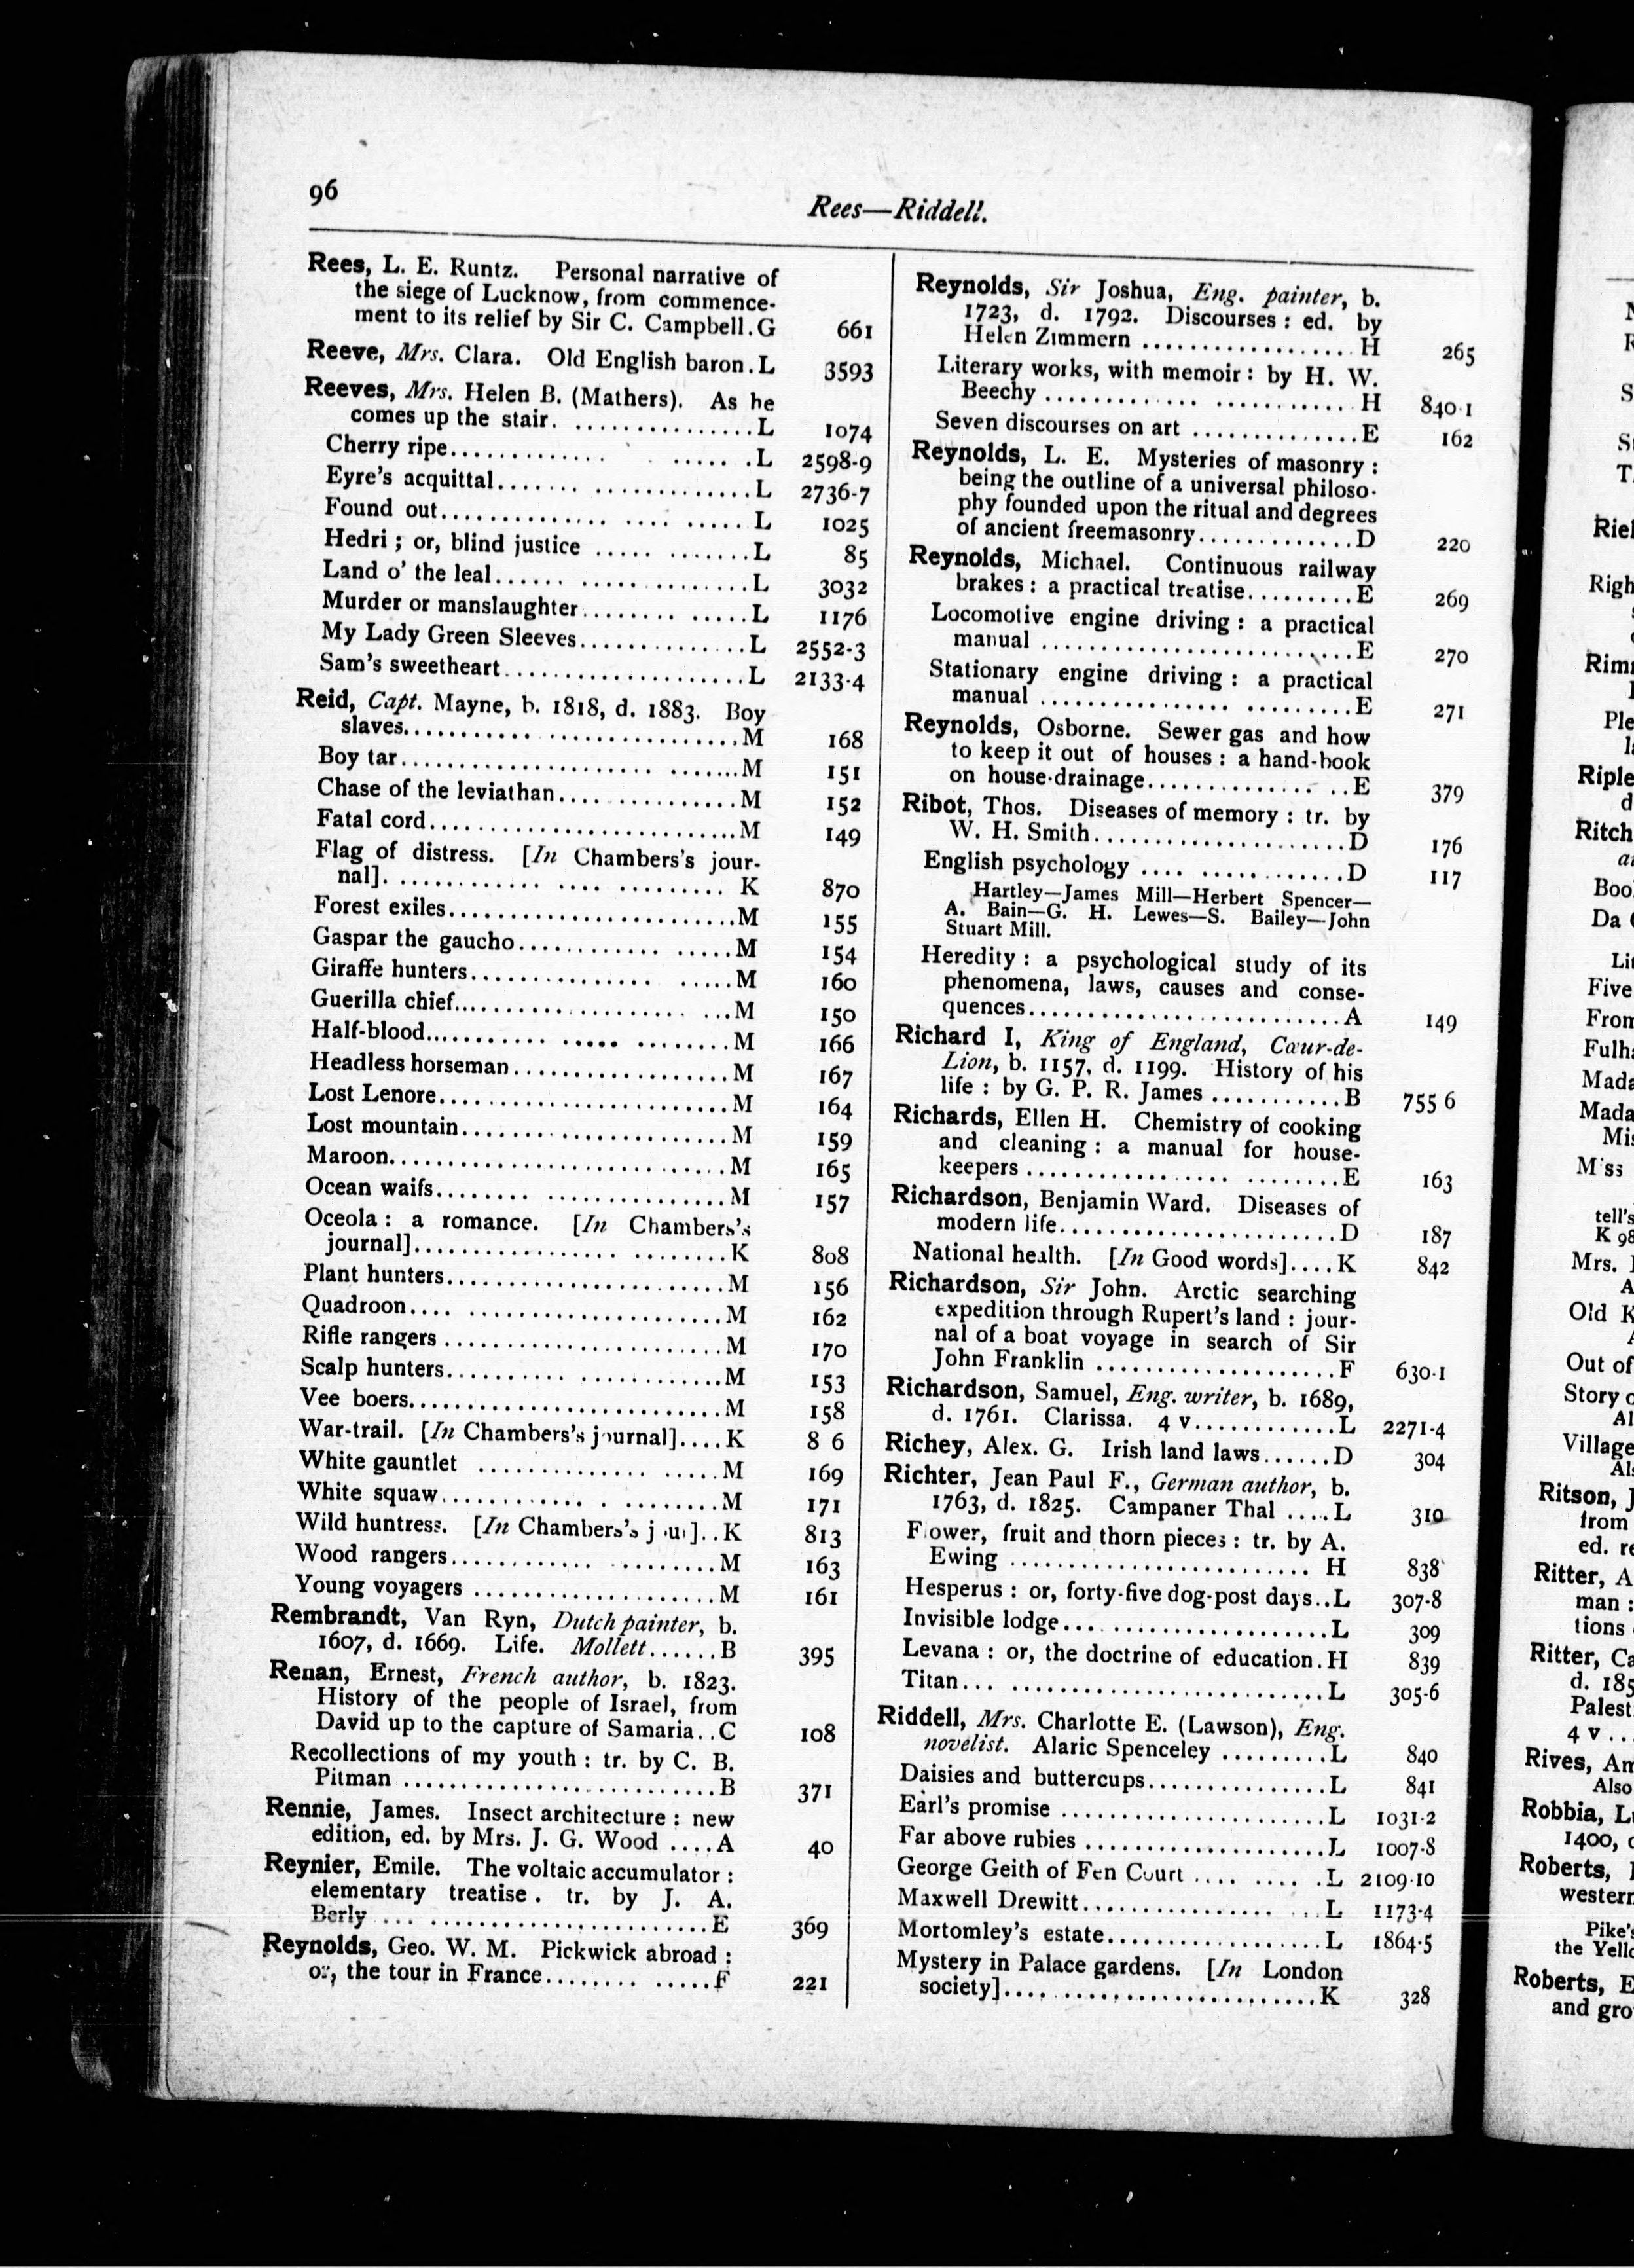 96
Rees—Riddell.
Rees, L. E. Runtz. Personal narrative of
the siege of Lucknow, from commence-
ment to its relief by Sir C. Campbell.G 661
Reeve, Mrs. Clara. Old English baron.L 3593
Reeves, Mrs. Helen B. (Mathers). As he
comes up the stair. ...............L 1074
Cherry ripe.............. ...... .L 2598-9
Eyre's acquittal....... .............L 2736-7
Found out.............. .... ..... L 1025
Hedri ; or, blind justice ..... .......L 85
Land o' the leal...... ..............L 3032
Murder or manslaughter........ .....L 1176
My Lady Green Sleeves...............L 2552-3
Sam's sweetheart.....................L 2133-4
Reid, Capt. Mayne, b. 1818, d. 1883. Boy
slaves........... ................M 168
Boy tar..................... .......M 151
Chase of the leviathan.... ............M 152
Fatal cord............................M 149
Flag of distress. [In Chambers's jour-
nal]. ............ .... ......... K 870
Forest exiles..........................M 155
Gaspar the gaucho............ .....M 154
Giraffe hunters............... .....M 160
Guerilla chief..................... ...M 150
Half-blood........... ..... ........M 166
Headless horseman...................M 167
Lost Lenore..........................M 164
Lost mountain........................M 159
Maroon..............................M 165
Ocean waifs........ ................M 157
Oceola : a romance. [In Chambers's
journal]................ ........K 808
Plant hunters.........................M 156
Quadroon.... .......................M 162
Rifle rangers .........................M 170
Scalp hunters........... .............M 153
Vee boers............................M 158
War-trail. [In Chambers's journal]....K 8 6
White gauntlet .............. .....M 169
White squaw............ . ........M 171
Wild huntress. [In Chambers's j u ]..K 813
Wood rangers............ .........M 163
Young voyagers ......................M 161
Rembrandt, Van Ryn, Dutch painter, b.
1607, d. 1669. Life. Mollett......B 395
Renan, Ernest, French author, b. 1823.
History of the people of Israel, from
David up to the capture of Samaria..C 108
Recollections of my youth : tr. by C. B.
Pitman ............................B 371
Rennie, James. Insect architecture : new
edition, ed. by Mrs. J. G. Wood ....A 40
Reynier, Emile. The voltaic accumulator :
elementary treatise. tr. by J. A.
Berly ... .........................E 369
Reynolds, Geo. W. M. Pickwick abroad :
or, the tour in France........ .....F 221
Reynolds, Sir Joshua, Eng. painter, b.
1723, d. 1792. Discourses : ed. by
Helen Zimmern ...................H 265
Literary works, with memoir : by H. W.
Beechy ............. ............H 840-1
Seven discourses on art ...............E 162
Reynolds, L. E. Mysteries of masonry :
being the outline of a universal philoso-
phy founded upon the ritual and degrees
of ancient freemasonry.............D 220
Reynolds, Michael. Continuous railway
brakes : a practical treatise.........E 269
Locomotive engine driving : a practical
manual ............................E 270
Stationary engine driving : a practical
manual ................ .........E 271
Reynolds, Osborne. Sewer gas and how
to keep it out of houses : a hand-book
on house-drainage.............. ..E 379
Ribot, Thos. Diseases of memory : tr. by
W. H. Smith......................D 176
English psychology .... .............D 117
Hartley—James Mill—Herbert Spencer—
A. Bain—G. H. Lewes—S. Bailey—John
Stuart Mill.
Heredity : a psychological study of its
phenomena, laws, causes and conse-
quences............................A 149
Richard I, King of England, Cœur-de-
Lion, b. 1157, d. 1199. History of his
life : by G. P. R. James ...........B 755 6
Richards, Ellen H. Chemistry of cooking
and cleaning : a manual for house-
keepers .................. ........E 163
Richardson, Benjamin Ward. Diseases of
modern life........................D 187
National health. [In Good words]....K 842
Richardson, Sir John. Arctic searching
expedition through Rupert's land : jour-
nal of a boat voyage in search of Sir
John Franklin ....................F 630-1
Richardson, Samuel, Eng. writer, b. 1689,
d. 1761. Clarissa. 4 v.............L 2271-4
Richey, Alex. G. Irish land laws......D 304
Richter, Jean Paul F., German author, b.
1763, d. 1825. Campaner Thal ....L 310
Flower, fruit and thorn pieces : tr. by A.
Ewing ........................... H 838
Hesperus : or, forty-five dog-post days..L 307-8
Invisible lodge........................L 309
Levana : or, the doctrine of education.H 839
Titan... ............................L 305-6
Riddell, Mrs. Charlotte E. (Lawson), Eng.
novelist. Alaric Spenceley .........L 840
Daisies and buttercups................L 841
Earl's promise .......................L 1031-2
Far above rubies .....................L 1007-8
George Geith of Fen Court .... ..... .L 2109-10
Maxwell Drewitt................. ...L 1173-4
Mortomley's estate...................L 1864-5
Mystery in Palace gardens. [In London
society]............................K 328
Riel
Righ
Rim
Ple
Riple
Ritch
Boo
Da
Lit
Five
From
Fulh
Mada
Mada
Mis
Miss
tell's
K 98
Mrs.
Old
Out of
Story
Al
Village
Ritson,
from
ed. re
Ritter, A
man :
tions
Ritter, Ca
d. 185
Palest
4 v ...
Rives, Am
Also
Robbia, L
1400,
Roberts,
western
Pike's
the Yell
Roberts, E
and gro